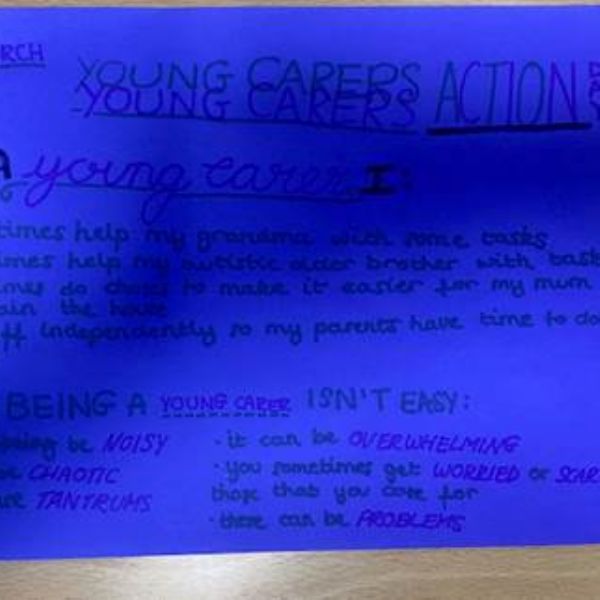 RCH
YOUNG CARERS ACTION
YOUNG CARERS
A young carer I:
times help my grandma with some tasks
imes help my autistic older brother with task
do chores to make it easier for my mum
ain the house
ff independently so my parents have time to do
BEING A YOUNG CARER ISN'T EASY:
be NOISY
be CHAOTIC
TANTRUMS
· it can be OVERWHELMING
· you sometimes get WORRIED or SCAR
those that you care for
· there can be PROBLEMS